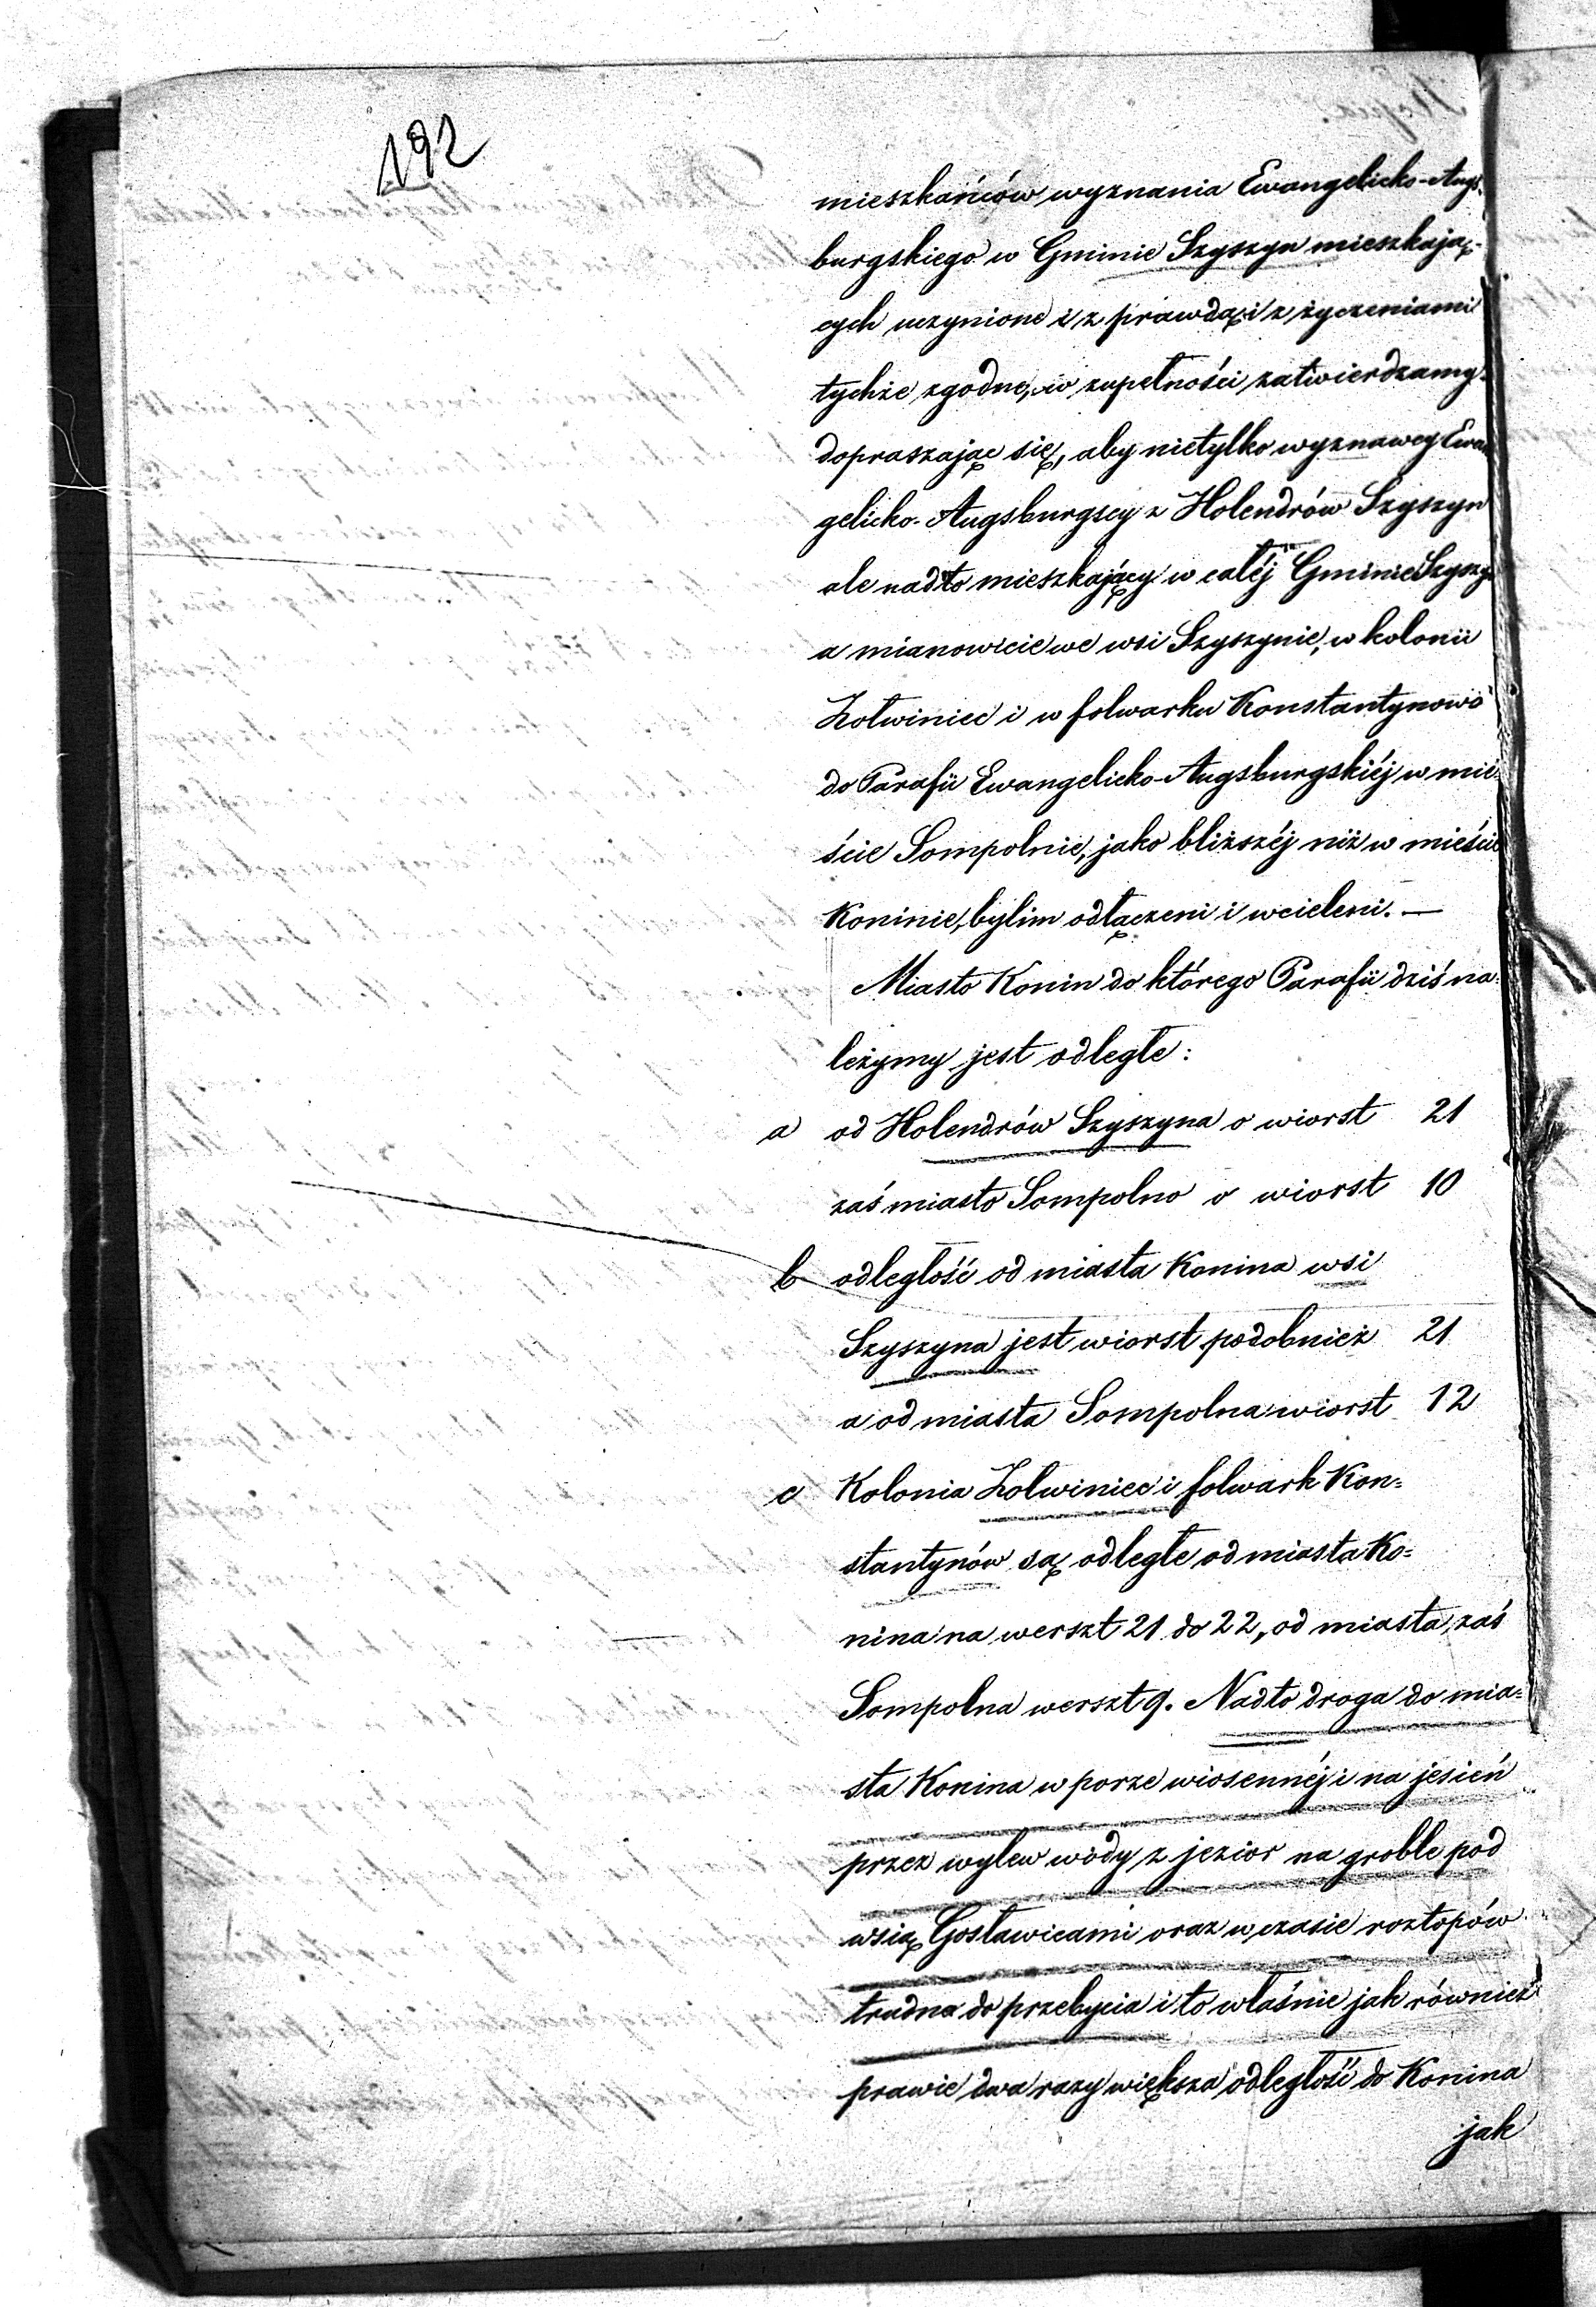 192
mieszkańców wyznania Ewangelicko-Augs-
burgskiego w Gminie Szyszyn mieszkają-
cych uczynione i z prawdą i z życzeniami
tychże zgodne, w zupełności zatwierdzamy
dopraszając się, aby nietylko wyznawcy Ewan
gelicko-Augsburgscy z Holendrów Szyszyn
ale nadto mieszkający w całéj Gminie Szyszyn
a mianowicie we wsi Szyszynie, w kolonii
Żołwiniec i w folwarku Konstantynowo
do Parafii Ewangelicko-Augsburgskiéj w mie-
ście Sompolnie, jako bliższéj niż w mieście
Koninie, bylim odłączeni i wcieleni. —
Miasto Konin do którego Parafii dziś na-
leżymy jest odległe:
a od Holendrów Szyszyna o wiorst 21
zaś miasto Sompolno o wiorst 10
b odległość od miasta Konina wsi
Szyszyna jest wiorst podobnież 21
a od miasta Sompolna wiorst 12
c Kolonia Żolwiniec i folwark Kon=
stantynów są odległe od miasta Ko=
nina na werszt 21 do 22, od miasta zaś
Sompolna werszt 9. Nadto droga do mia=
sta Konina w porze wiosennéj i na jesień
przez wylew wody z jezior na groble pod
wsią Gosławicami oraz w czasie roztopów
trudna do przebycia i to właśnie jak również
prawie dwa razy większa odległość do Konina
jak